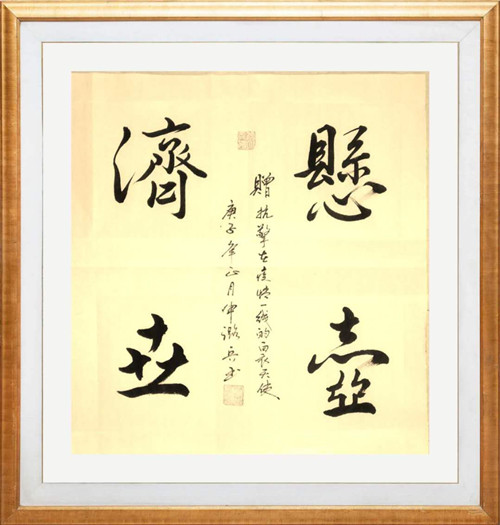 懸壺
濟世
贈抗擊在疫情一線的白衣天使
庚子年正月申潞兵书